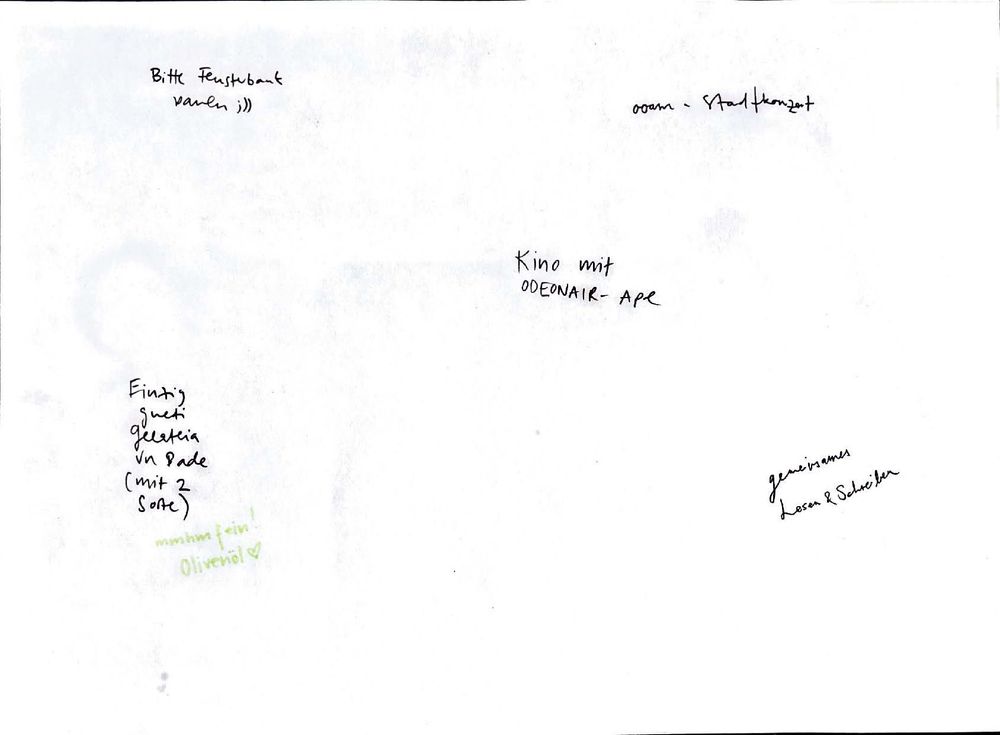 Bitte Fensterbank
ooam - Stadtkonzert
Kino mit
ODEONAIR- Apé
Einzig
gueti
gelateria
vn Bade
(mit 2
Sorte)
mmhm fein!
Olivenöl ♡
gemeinsames
Lesen & Schreiben